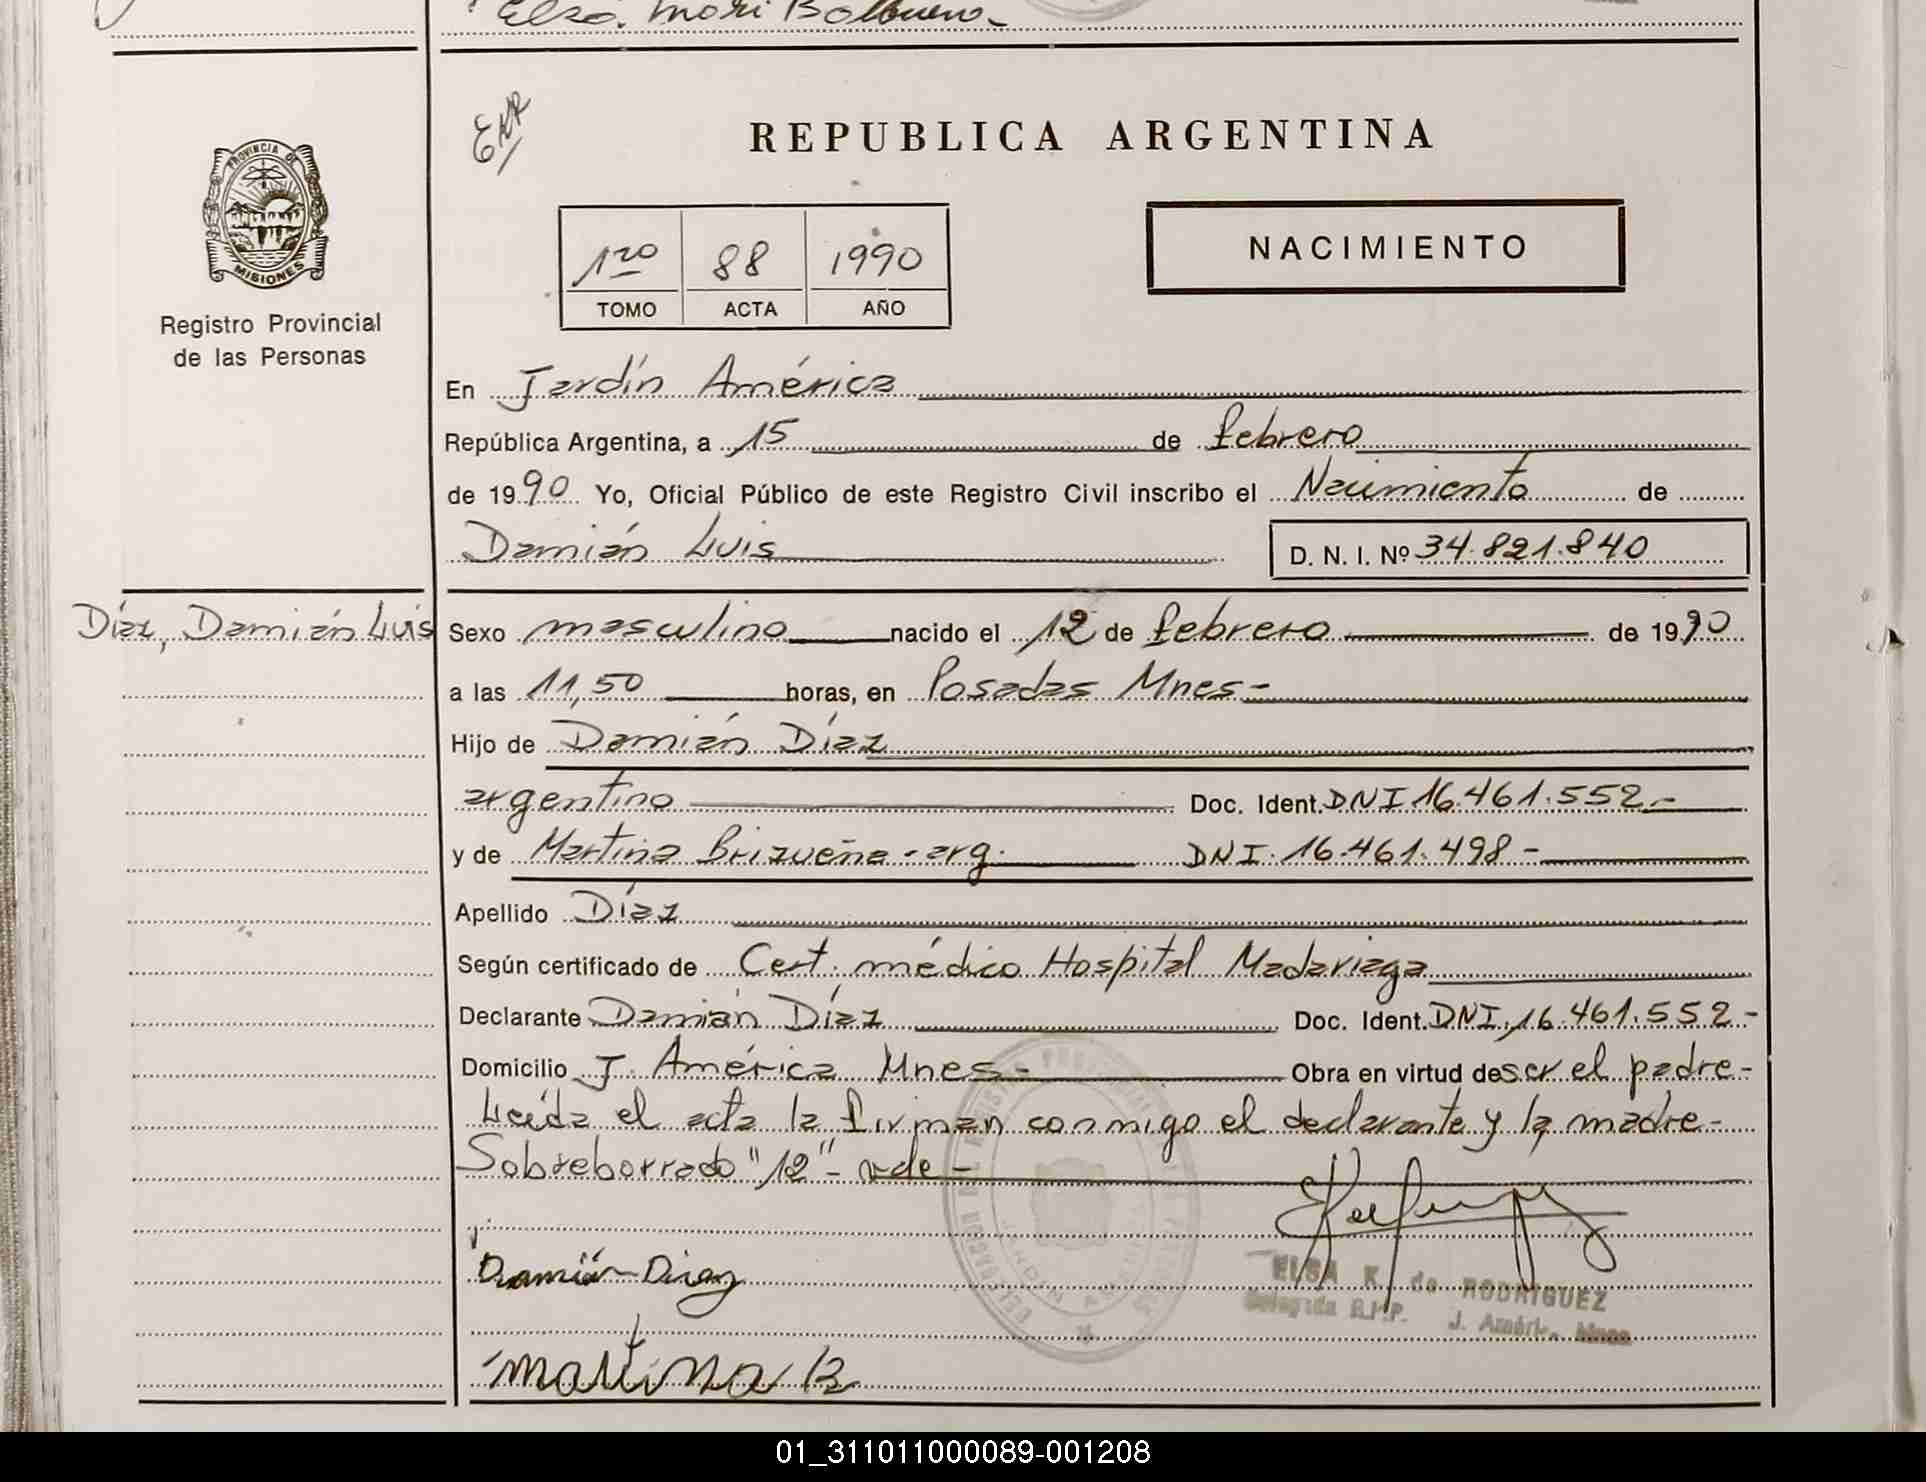 Elsa. Mori Balbuena-
EKR
REPUBLICA ARGENTINA
PROVINCIA DE
MISIONES
Registro Provincial
de las Personas
1ro 88 1990
TOMO ACTA AÑO
NACIMIENTO
En Jardín América
República Argentina, a 15 de febrero
de 1990 Yo, Oficial Público de este Registro Civil inscribo el Nacimiento de
Damián Luis D. N. I. Nº 34.821.840
Díaz, Damián Luis
Sexo masculino nacido el 12 de febrero de 1990
a las 11,50 horas, en Posadas Mnes-
Hijo de Damián Díaz
argentino Doc. Ident. DNI 16.461.552.-
y de Martina Brizueña - arg. DNI. 16.461.498-
Apellido Díaz
Según certificado de Cert. médico Hospital Madariaga
Declarante Damián Díaz Doc. Ident. DNI. 16.461.552-
Domicilio J. América Mnes- Obra en virtud de ser el padre-
Leída el acta la firman conmigo el declarante y la madre-
Sobreborrado "12"- vale-
Damián Diaz
ELSA K. de RODRIGUEZ
Delegada R.P.P. J. Améric. Mnes
martina B
01_311011000089-001208